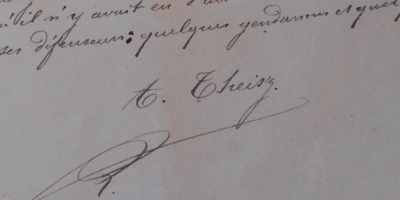 il n'y avait en d'a
ses défenseurs: quelques gendarmes et quel
A. Theisz.